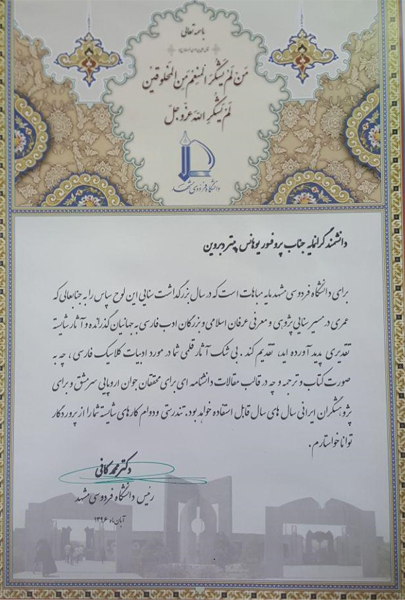 باسمه تعالی
مَن لَم یَشکُرِ المُنعِمَ مِنَ المَخلوقینَ
لَم یَشکُرِ اللهَ عَزَّوَجَلَّ
دانشگاه فردوسی مشهد
دانشمند گرانمایه جناب پروفسور یوهانس پیتر دبروین
برای دانشگاه فردوسی مشهد مایه مباهات است که در سال بزرگداشت سنایی این لوح سپاس را به جنابعالی که
عمری در مسیر سنایی پژوهی و معرفی عرفان اسلامی و بزرگان ادب فارسی به جهانیان گذرانده و آثار شایسته
تقدیری پدید آورده اید، تقدیم کند. بی شک آثار قلمی شما در مورد ادبیات کلاسیک فارسی، چه به
صورت کتاب و ترجمه و چه در قالب مقالات دانشنامه ای برای محققان جوان اروپایی سرمشق و برای
پژوهشگران ایرانی سال های سال قابل استفاده خواهد بود. تندرستی و دوام کارهای شایسته شما را از پروردگار
توانا خواستارم.
دکتر محمد کافی
رئیس دانشگاه فردوسی مشهد
آبان ماه ۱۳۹۶